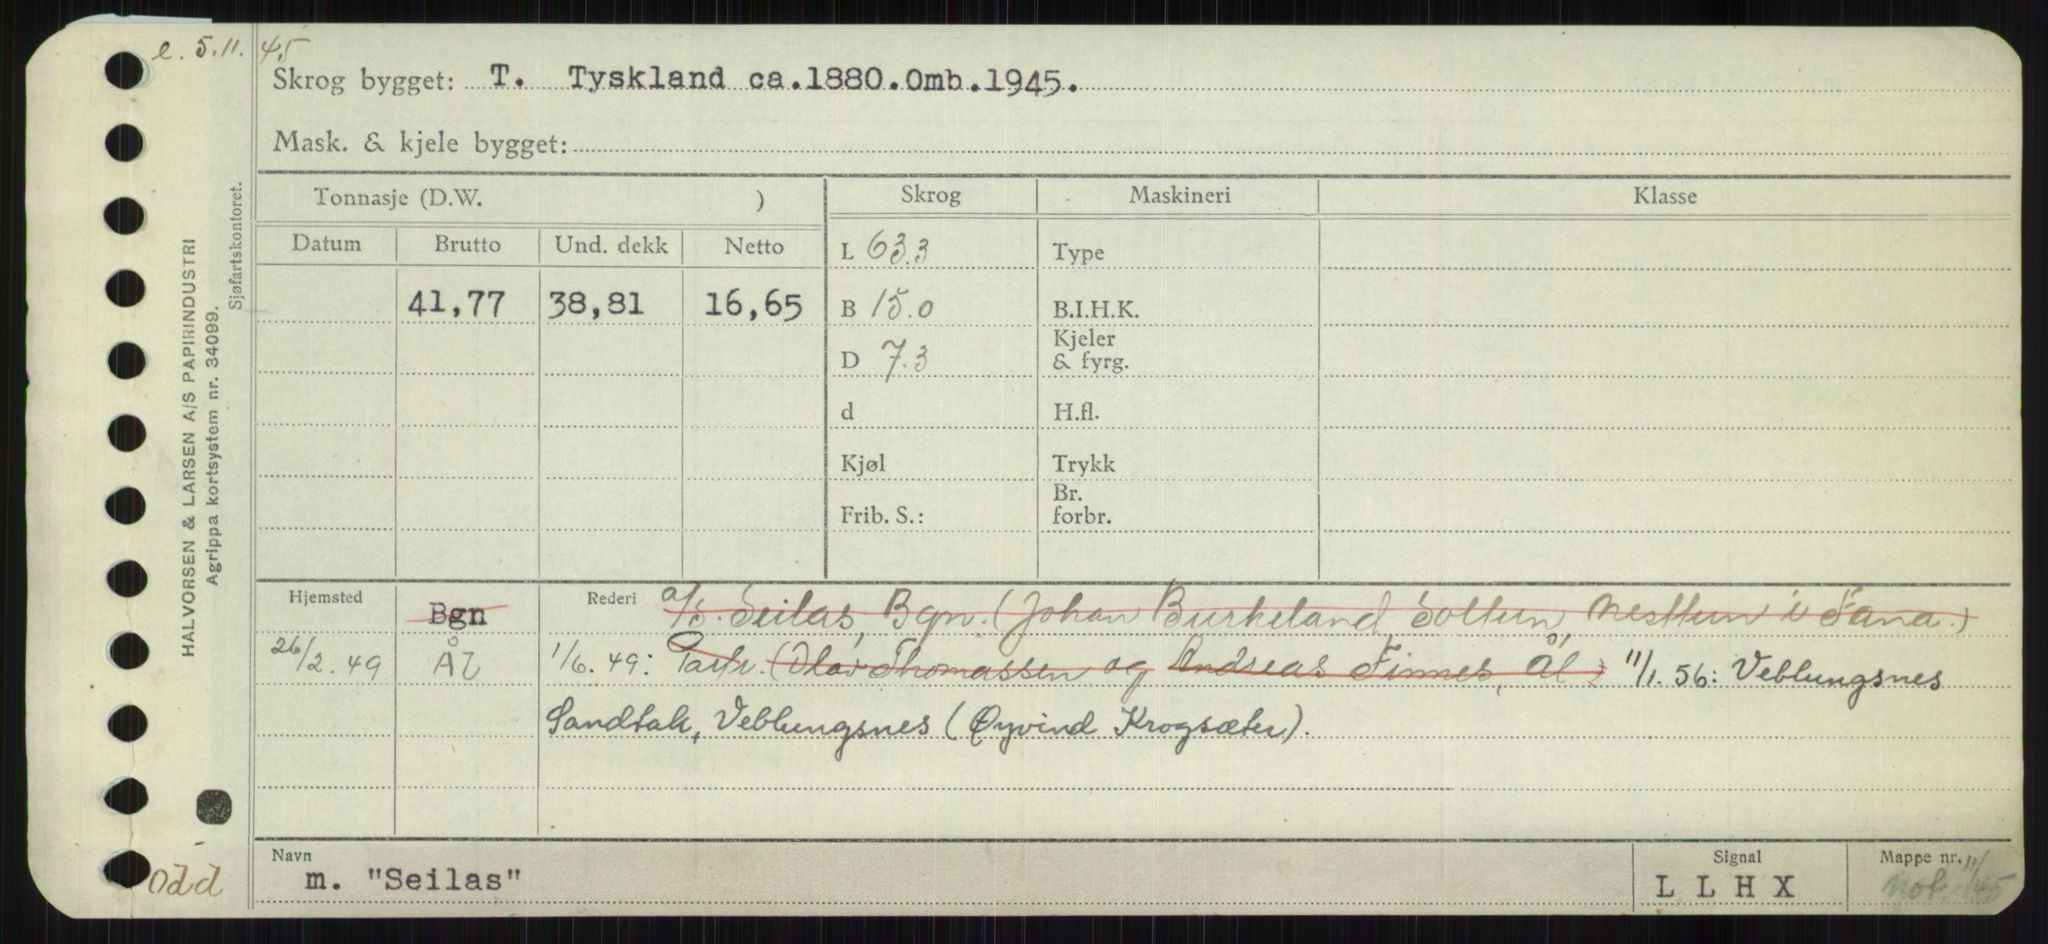 e. 5.11. 45
Skrog bygget: T. Tyskland ca.1880.Omb.1945.
Mask. & kjele bygget:
HALVORSEN & LARSEN A/S PAPIRINDUSTRI
Agrippa kortsystem nr. 34099.
Sjøfartskontoret.
Tonnasje (D.W. ) Skrog Maskineri Klasse
Datum Brutto Und. dekk Netto L 63.3 Type
41,77 38,81 16,65 B 15.0 B.I.H.K.
Kjeler
D 7.3 & fyrg.
d H.fl.
Kjøl Trykk
Br.
Frib. S.: forbr.
Hjemsted Bgn Rederi a/s. Seilas, Bgn. (Johan Burkeland Soltun Nesttun i Fana.)
26/2. 49 Ål 1/6. 49: Partr. (Olav Thomassen og Andreas Finnes, Ål) 11/1. 56: Veblungsnes
Sandtak, Veblungsnes (Øyvind Krogsæter).
Odd
Navn Signal Mappe nr.
m. "Seilas" L L H X 11/45